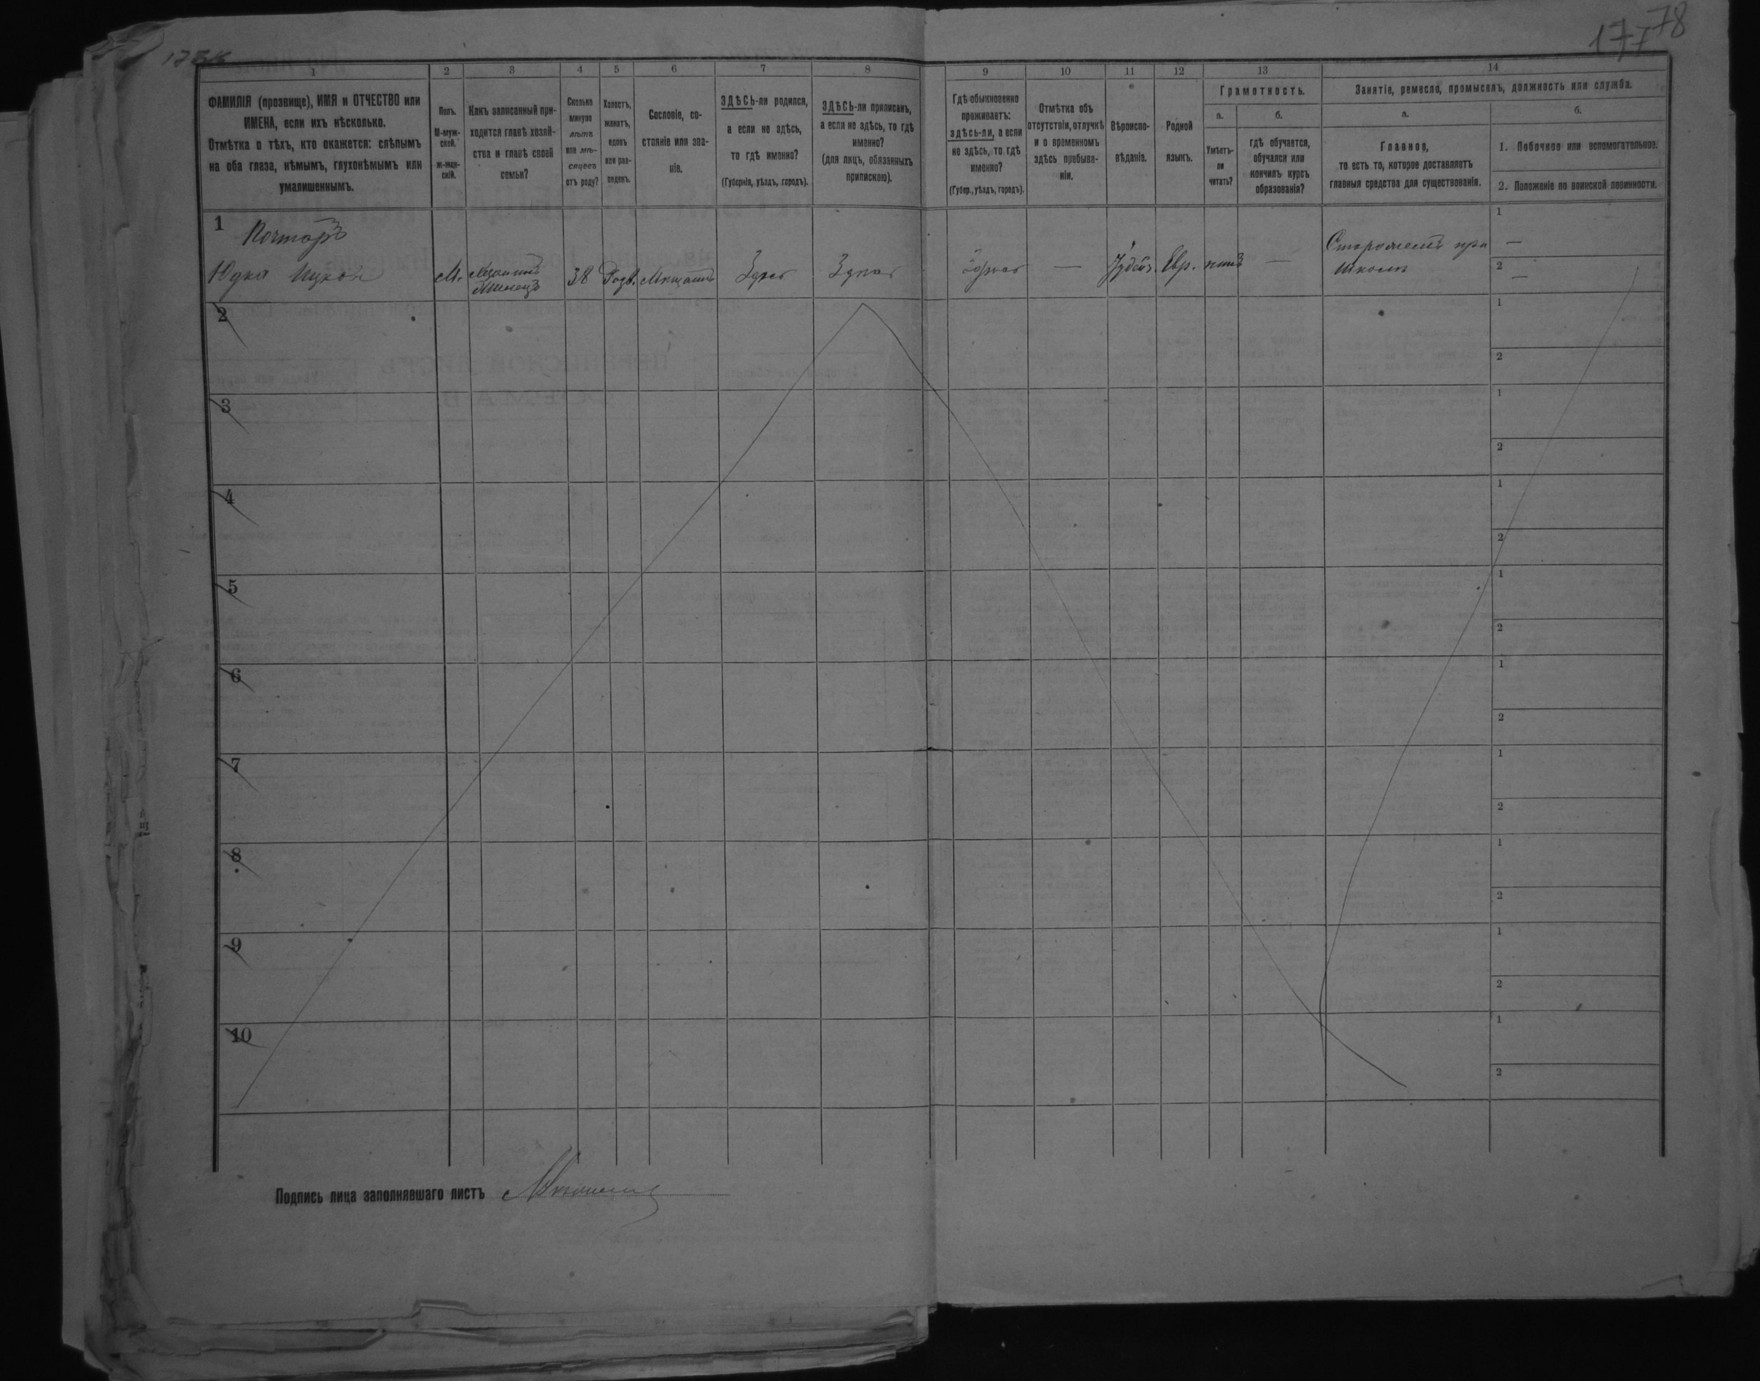 178
177
1
2
3
4
5
6
7
8
9
10
11
12
13
14
ФАМИЛІЯ (прозвище), ИМЯ и ОТЧЕСТВО или
ИМЕНА, если ихъ нѣсколько.
Отмѣтка о тѣхъ, кто окажется: слѣпымъ
на оба глаза, нѣмымъ, глухонѣмымъ или
умалишеннымъ.
Полъ.
М-муж-
ской.
Ж-жен-
скій.
Какъ записанный при-
ходится главѣ хозяй-
ства и главѣ своей
семьи?
Сколько
минуло
лѣтъ
или мѣ-
сяцевъ
отъ роду?
Холостъ,
женатъ,
вдовъ
или раз-
веденъ.
Сословіе, со-
стояніе или зва-
ніе.
ЗДѢСЬ-ли родился,
а если не здѣсь,
то гдѣ именно?
(Губернія, уѣздъ, городъ).
ЗДѢСЬ-ли приписанъ,
а если не здѣсь, то гдѣ
именно?
(для лицъ, обязанныхъ
припискою).
Гдѣ обыкновенно
проживаетъ:
здѣсь-ли, а если
не здѣсь, то гдѣ
именно?
(Губер., уѣздъ, городъ).
Отмѣтка объ
отсутствіи, отлучкѣ
и о временномъ
здѣсь пребыва-
ніи.
Вѣроиспо-
вѣданіе.
Родной
языкъ.
Грамотность.
а.
Умѣетъ-
ли
читать?
б.
гдѣ обучается,
обучался или
кончилъ курсъ
образованія?
Занятіе, ремесло, промыселъ, должность или служба.
а.
Главное,
то есть то, которое доставляетъ
главныя средства для существованія.
б.
1. Побочное или вспомогательное.
2. Положеніе по воинской повинности.
1
Юдка М. 38 Разв. Мѣщанинъ Здѣсь Здѣсь Здѣсь — Іудей. Евр. — —
Сторожемъ при
школѣ
1
—
2
—
2
1
2
3
1
2
4
1
2
5
1
2
6
1
2
7
1
2
8
1
2
9
1
2
10
1
2
Подпись лица заполнявшаго листъ